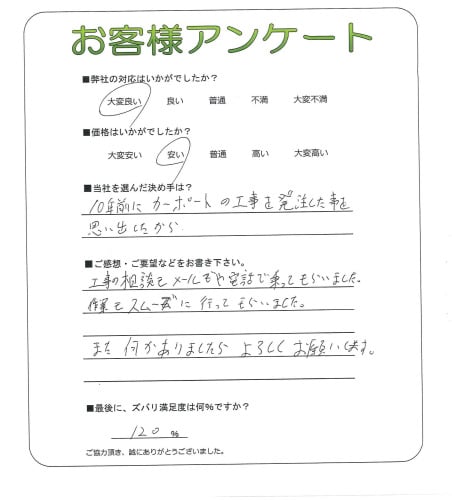 お客様アンケート
■弊社の対応はいかがでしたか？
大変良い 良い 普通 不満 大変不満
■価格はいかがでしたか？
大変安い 安い 普通 高い 大変高い
■当社を選んだ決め手は？
10年前にカーポートの工事を発注した事を
思い出したから
■ご感想・ご要望などをお書き下さい。
工事の相談もメールや電話で乗ってもらいました。
作業もスムーズに行ってもらいました。
また何かありましたらよろしくお願いします。
■最後に、ズバリ満足度は何%ですか？
120 %
ご協力頂き、誠にありがとうございました。